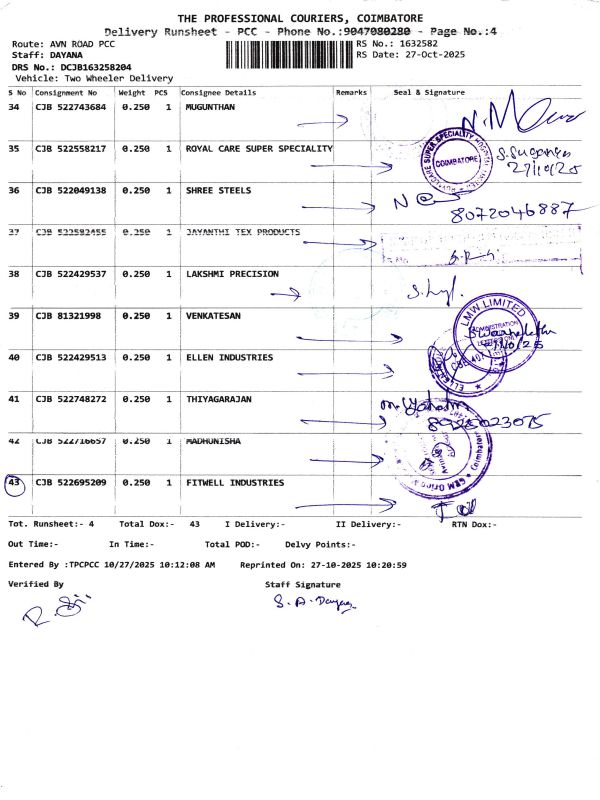 THE PROFESSIONAL COURIERS, COIMBATORE
Delivery Runsheet - PCC - Phone No.:9047080280 - Page No.:4
Route: AVN ROAD PCC
RS No.: 1632582
Staff: DAYANA
RS Date: 27-Oct-2025
DRS No.: DCJB163258204
Vehicle: Two Wheeler Delivery
S No Consignment No Weight PCS Consignee Details Remarks Seal & Signature
34 CJB 522743684 0.250 1 MUGUNTHAN
35 CJB 522558217 0.250 1 ROYAL CARE SUPER SPECIALITY
COIMBATORE
27/10/25
36 CJB 522049138 0.250 1 SHREE STEELS
8072046887
37 CJB 522582455 0.250 1 JAYANTHI TEX PRODUCTS
38 CJB 522429537 0.250 1 LAKSHMI PRECISION
39 CJB 81321998 0.250 1 VENKATESAN
LMW LIMITED
40 CJB 522429513 0.250 1 ELLEN INDUSTRIES
41 CJB 522748272 0.250 1 THIYAGARAJAN
8925023075
42 CJB 522716657 0.250 1 MADHUNISHA
43 CJB 522695209 0.250 1 FITWELL INDUSTRIES
Tot. Runsheet:- 4 Total Dox:- 43 I Delivery:- II Delivery:- RTN Dox:-
Out Time:- In Time:- Total POD:- Delvy Points:-
Entered By :TPCPCC 10/27/2025 10:12:08 AM Reprinted On: 27-10-2025 10:20:59
Verified By Staff Signature